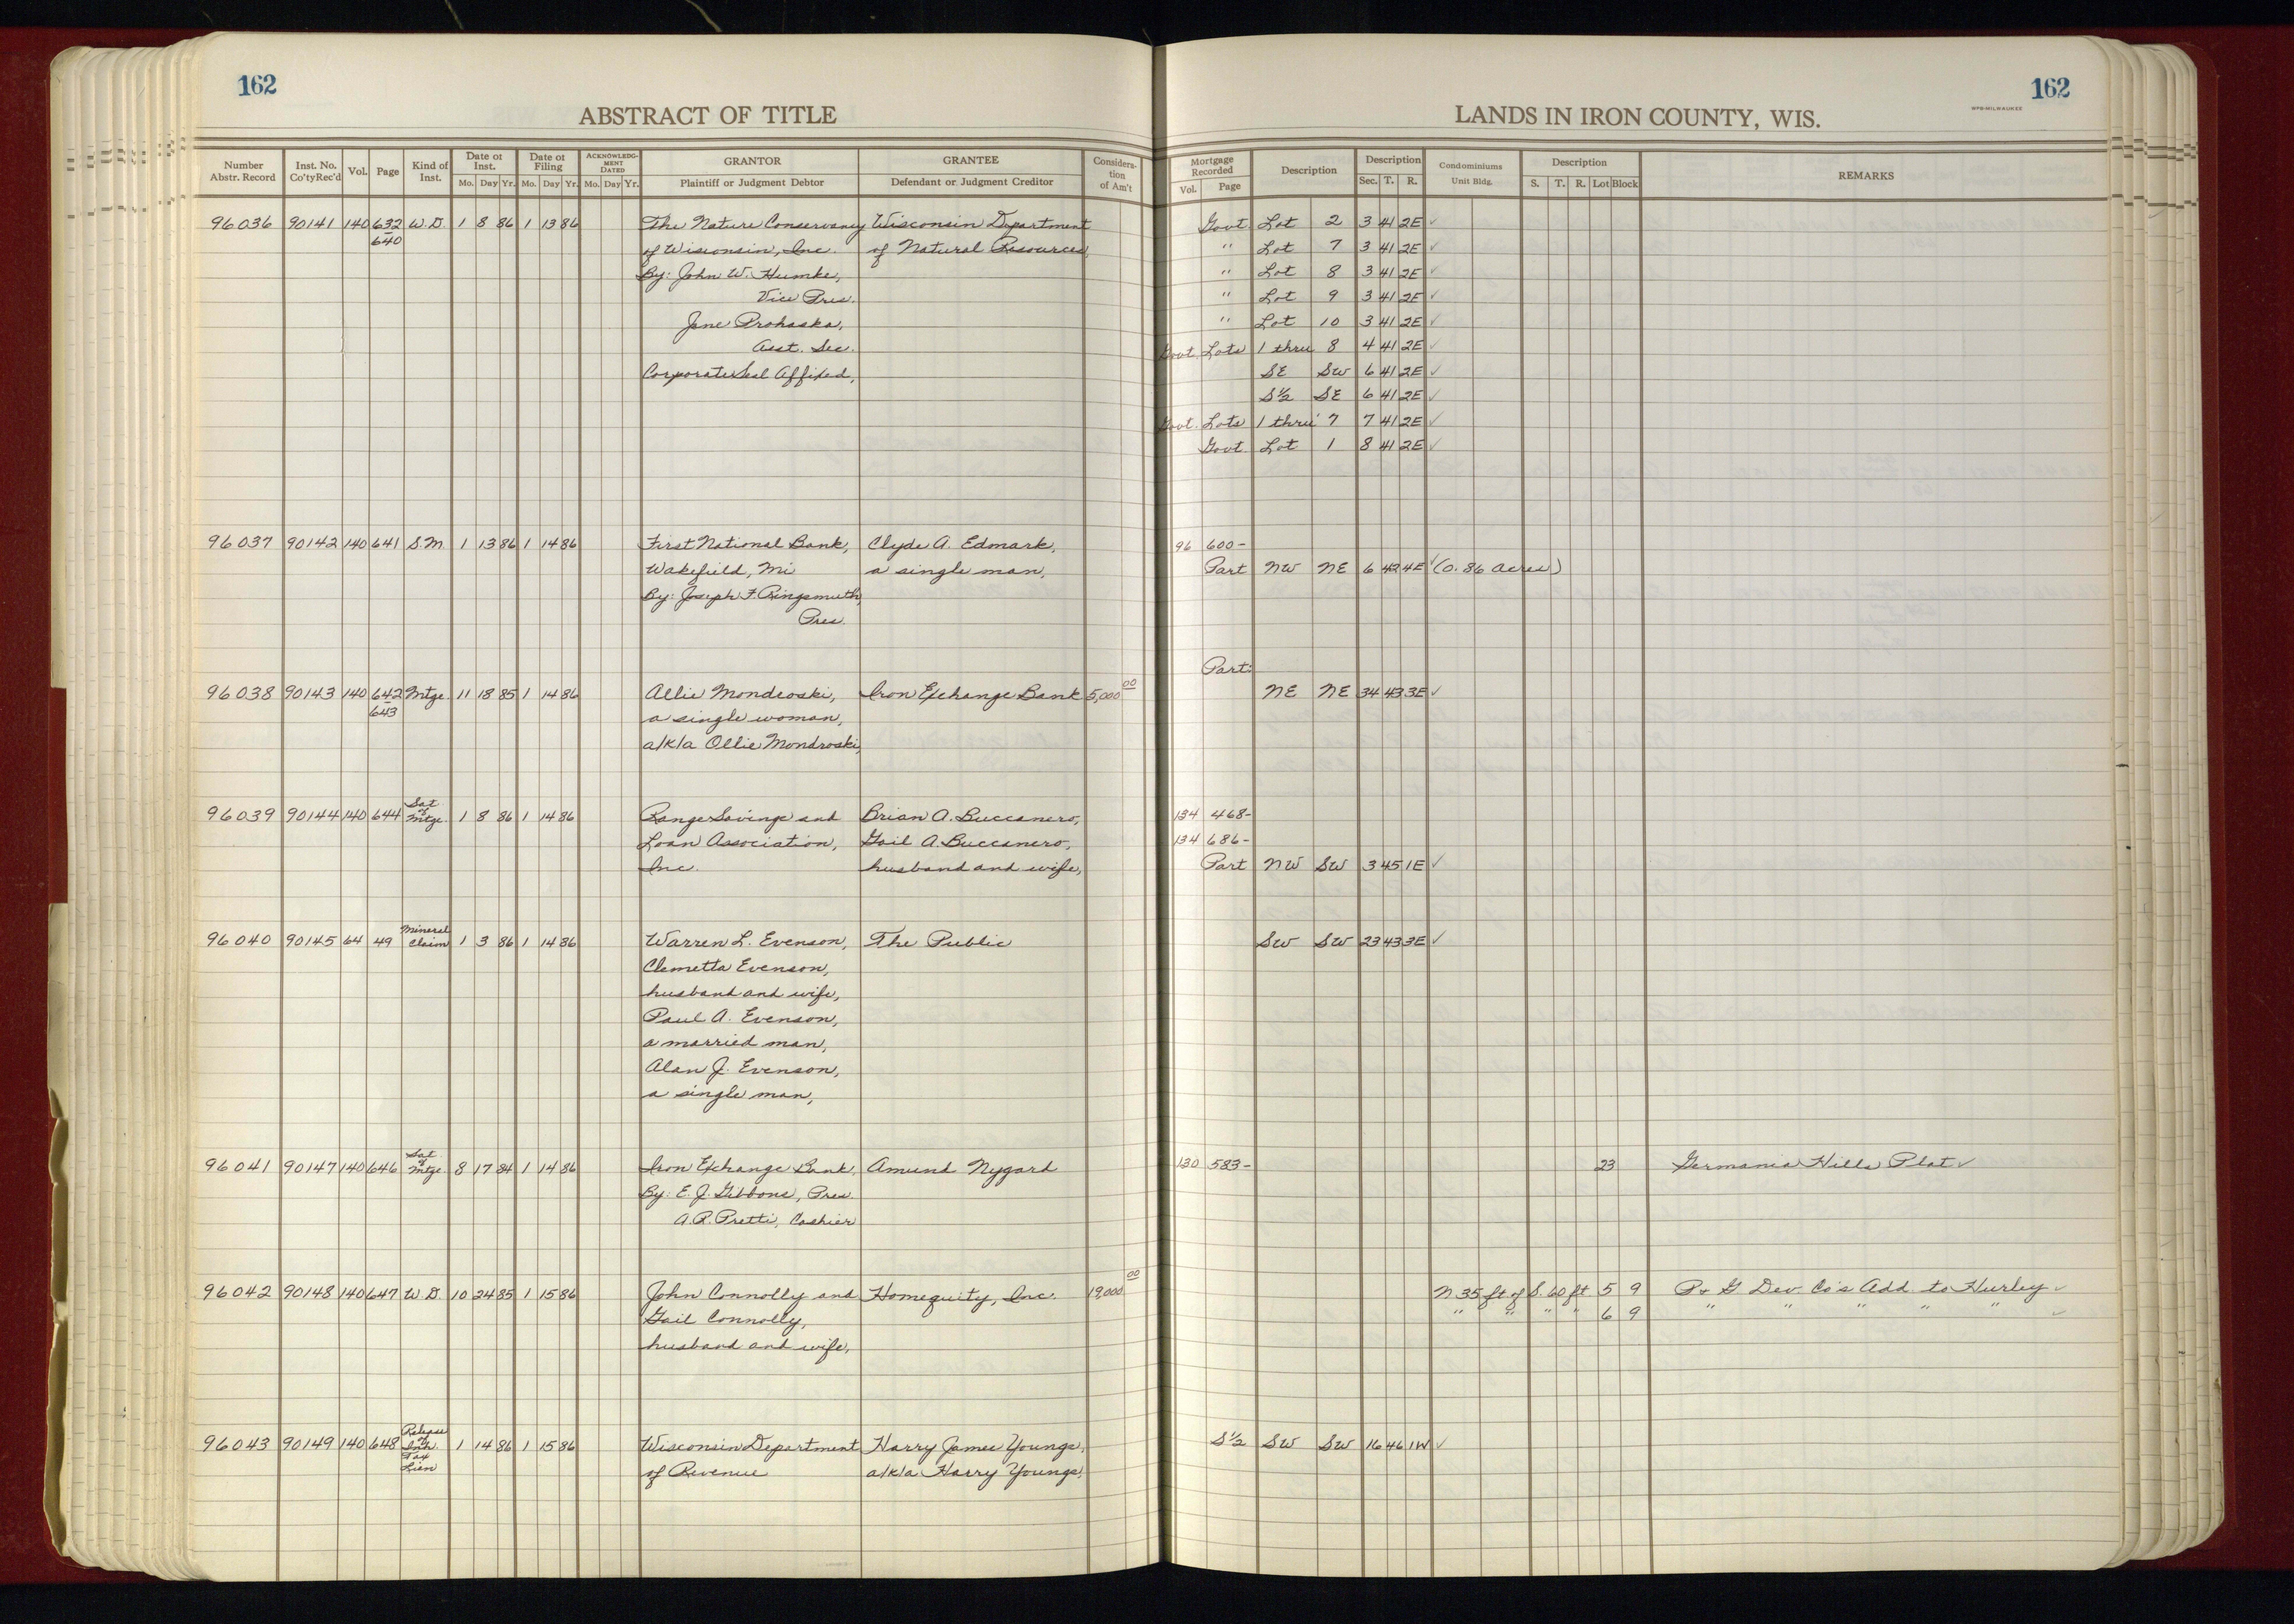 162
ABSTRACT OF TITLE
Number Abstr. Record | Inst. No. Co'ty Rec'd | Vol. | Page | Kind of Inst. | Date of Inst. Mo. Day Yr. | Date of Filing Mo. Day Yr. | ACKNOWLEDGMENT DATED Mo. Day Yr. | GRANTOR Plaintiff or Judgment Debtor | GRANTEE Defendant or Judgment Creditor | Consideration of Am't
96036 90141 140 632 W.D. 1 8 86 1 13 86 The Nature Conservancy Wisconsin Department
640 of Wisconsin, Inc. of Natural Resources,
By: John W. Humke,
Vice Pres.
Jane Prohaska,
Asst. Sec.
Corporate Seal Affixed,
96037 90142 140 641 S.M. 1 13 86 1 14 86 First National Bank, Clyde A. Edmark,
Wakefield, Mi a single man,
By: Joseph F. Ringsmuth,
Pres.
96038 90143 140 642 Mtge. 11 18 85 1 14 86 Allie Mondroski, Iron Exchange Bank 5,000 00
643 a single woman,
a/k/a Ollie Mondroski,
96039 90144 140 644 Sat of Mtge. 1 8 86 1 14 86 Range Savings and Brian A. Buccanero,
Loan Association, Gail A. Buccanero,
Inc. husband and wife,
96040 90145 64 49 Mineral Claim 1 3 86 1 14 86 Warren L. Evenson, The Public
Clemetta Evenson,
husband and wife,
Paul A. Evenson,
a married man,
Alan J. Evenson,
a single man,
96041 90147 140 646 Sat of Mtge. 8 17 84 1 14 86 Iron Exchange Bank, Amund Nygard
By: E. J. Gibbons, Pres.
A.R. Pretti, Cashier
96042 90148 140 647 W.D. 10 24 85 1 15 86 John Connolly and Homequity, Inc. 19,000 00
Gail Connolly,
husband and wife,
96043 90149 140 648 Release of Inh. Tax Lien 1 14 86 1 15 86 Wisconsin Department Harry James Youngs,
of Revenue a/k/a Harry Youngs,
162
WPB-MILWAUKEE
LANDS IN IRON COUNTY, WIS.
Mortgage Recorded Vol. Page | Description | Description Sec. T. R. | Condominiums Unit Bldg. | Description S. T. R. Lot Block | REMARKS
Govt. Lot 2 3 41 2E ✓
" Lot 7 3 41 2E ✓
" Lot 8 3 41 2E ✓
" Lot 9 3 41 2E ✓
" Lot 10 3 41 2E ✓
Govt. Lots 1 thru 8 4 41 2E ✓
SE SW 6 41 2E ✓
S½ SE 6 41 2E ✓
Govt. Lots 1 thru 7 7 41 2E ✓
Govt Lot 1 8 41 2E ✓
96 600-
Part NW NE 6 42 4E ✓ (0.86 acres)
Part:
NE NE 34 43 3E ✓
134 468-
134 686-
Part NW SW 3 45 1E ✓
SW SW 23 43 3E ✓
130 583- 23 Germania Hills Plat ✓
N 35 ft of S. 60 ft 5 9 P & G Dev. Co's Add. to Hurley ✓
" " " " 6 9 " " " " " ✓
S½ SW SW 16 46 1W ✓